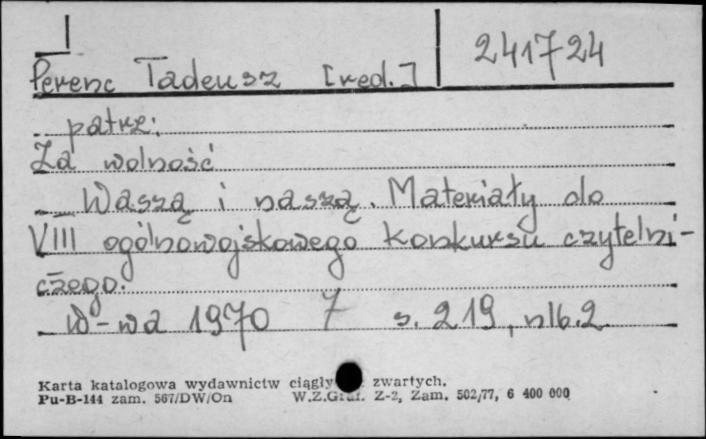 241724
Perenc Tadeusz [red.]
patrz:
Za wolność
Waszą i naszą. Materiały do
VIII ogólnowojskowego konkursu czytelni-
czego.
W-wa 1970 7 s. 219, nlb. 2
Karta katalogowa wydawnictw zwartych.
Pu-B-144 zam. 567/DW/On W.Z.Graf. Z-2, Zam. 502/77, 6 400 000